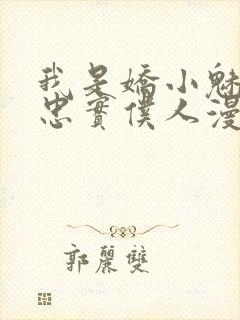 我是嬌小魅
忠實僕人漫
郭麗雙